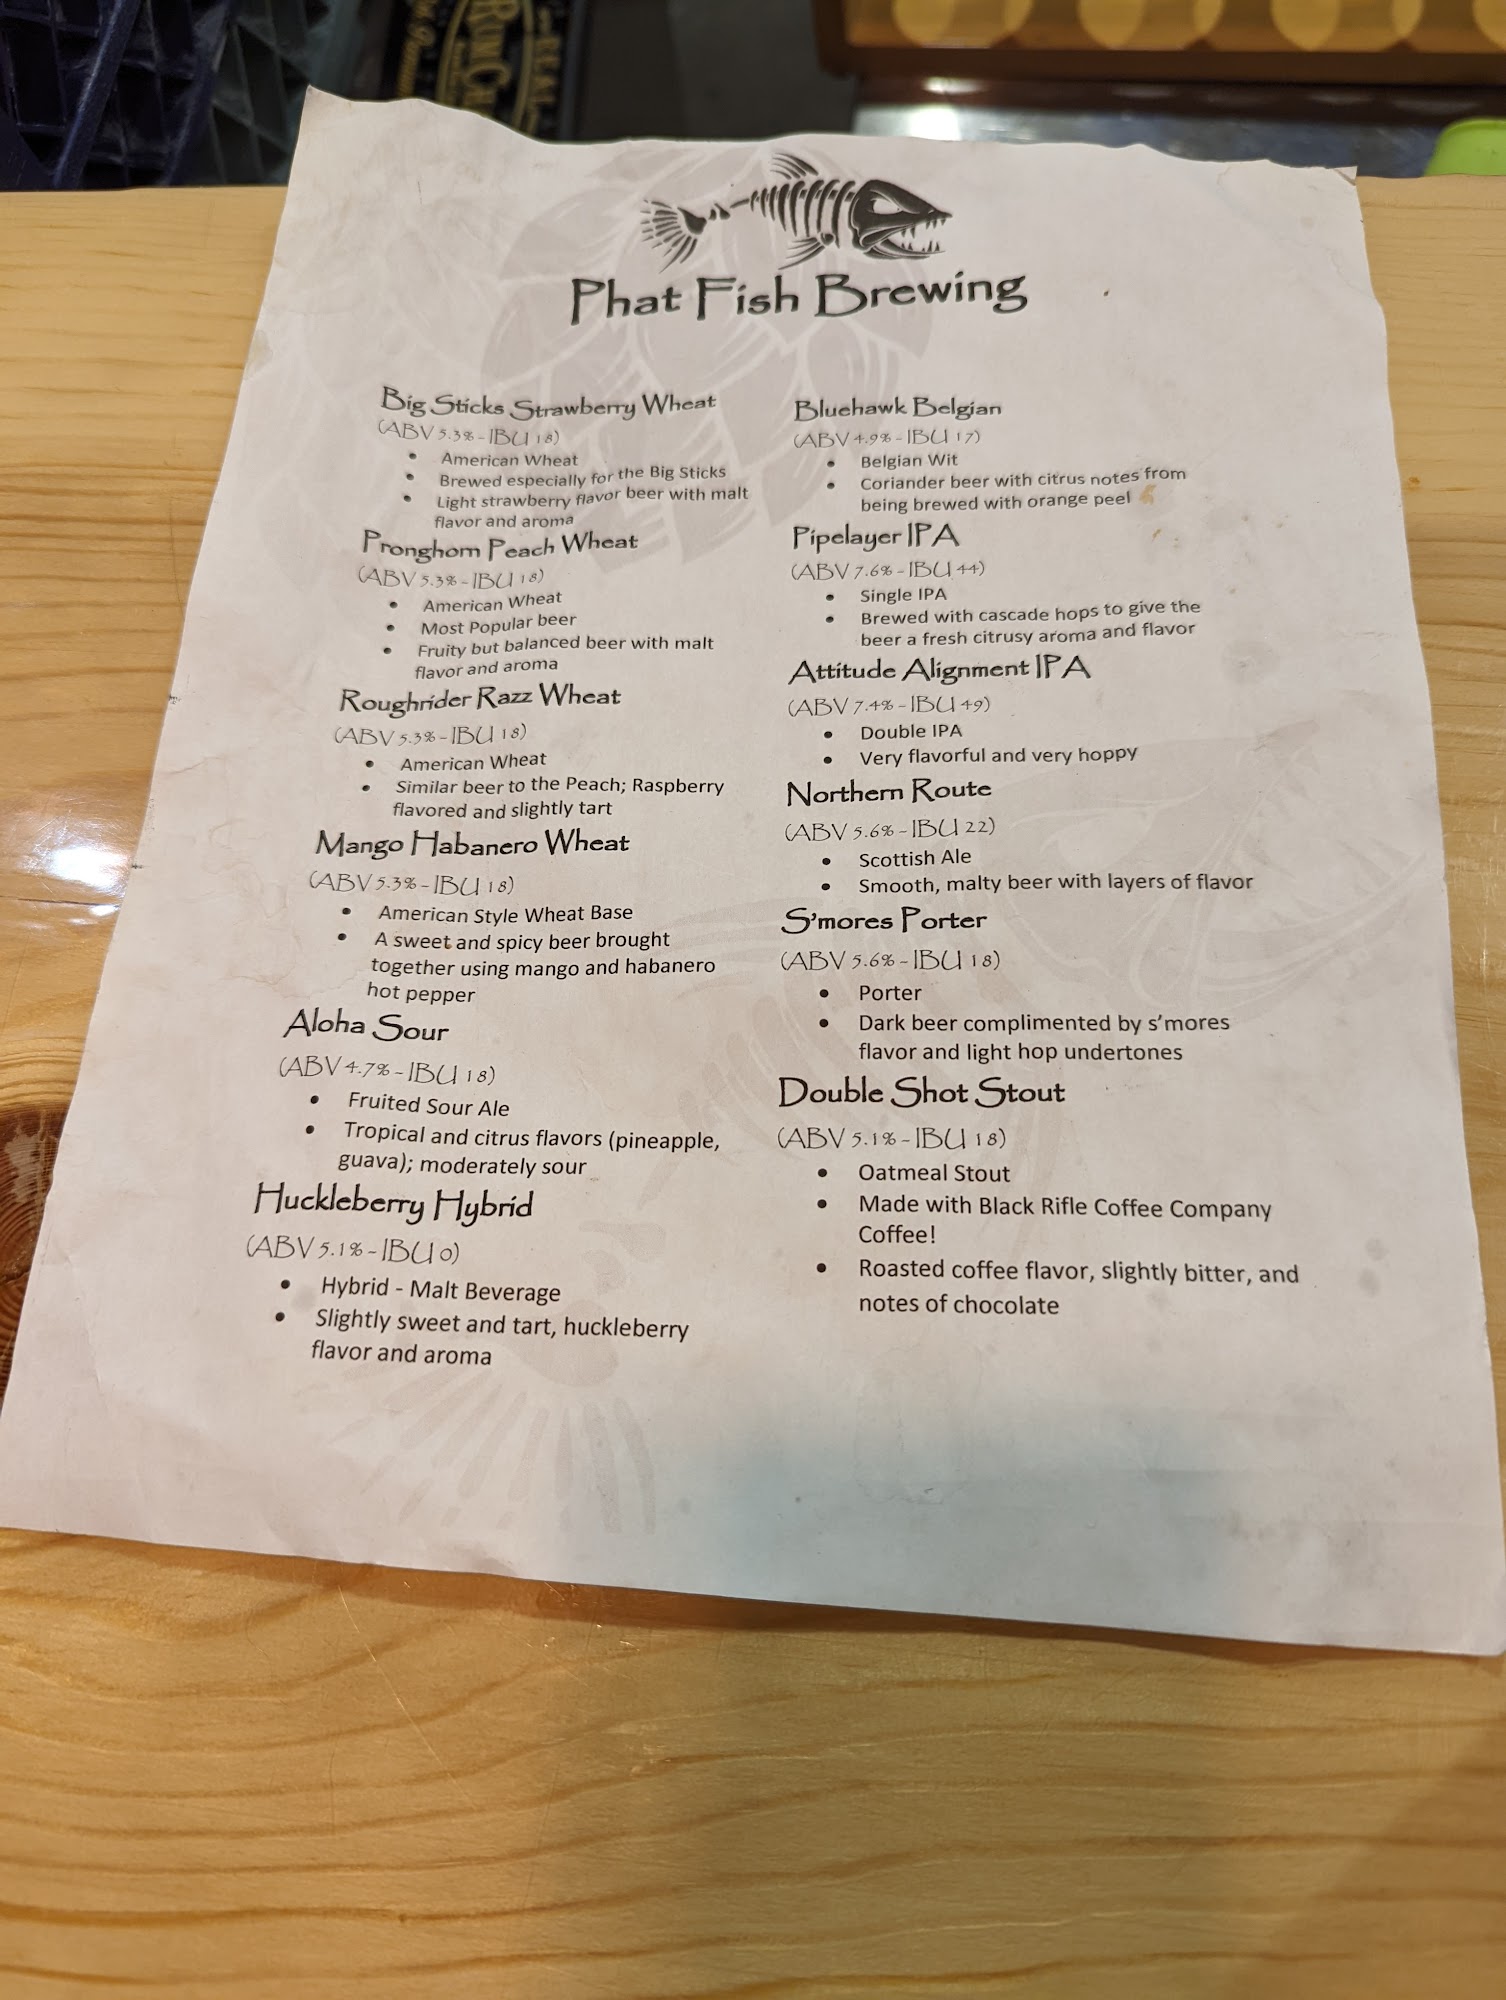 Phat Fish Brewing
Big Sticks Strawberry Wheat
(ABV 5.3% - IBU 18)
• American Wheat
• Brewed especially for the Big Sticks
• Light strawberry flavor beer with malt
flavor and aroma
Pronghorn Peach Wheat
(ABV 5.3% - IBU 18)
• American Wheat
• Most Popular beer
• Fruity but balanced beer with malt
flavor and aroma
Roughrider Razz Wheat
(ABV 5.3% - IBU 18)
• American Wheat
• Similar beer to the Peach; Raspberry
flavored and slightly tart
Mango Habanero Wheat
(ABV 5.3% - IBU 18)
• American Style Wheat Base
• A sweet and spicy beer brought
together using mango and habanero
hot pepper
Aloha Sour
(ABV 4.7% - IBU 18)
• Fruited Sour Ale
• Tropical and citrus flavors (pineapple,
guava); moderately sour
Huckleberry Hybrid
(ABV 5.1% - IBU 0)
• Hybrid - Malt Beverage
• Slightly sweet and tart, huckleberry
flavor and aroma
Bluehawk Belgian
(ABV 4.9% - IBU 17)
• Belgian Wit
• Coriander beer with citrus notes from
being brewed with orange peel
Pipelayer IPA
(ABV 7.6% - IBU 44)
• Single IPA
• Brewed with cascade hops to give the
beer a fresh citrusy aroma and flavor
Attitude Alignment IPA
(ABV 7.4% - IBU 49)
• Double IPA
• Very flavorful and very hoppy
Northern Route
(ABV 5.6% - IBU 22)
• Scottish Ale
• Smooth, malty beer with layers of flavor
S'mores Porter
(ABV 5.6% - IBU 18)
• Porter
• Dark beer complimented by s'mores
flavor and light hop undertones
Double Shot Stout
(ABV 5.1% - IBU 18)
• Oatmeal Stout
• Made with Black Rifle Coffee Company
Coffee!
• Roasted coffee flavor, slightly bitter, and
notes of chocolate